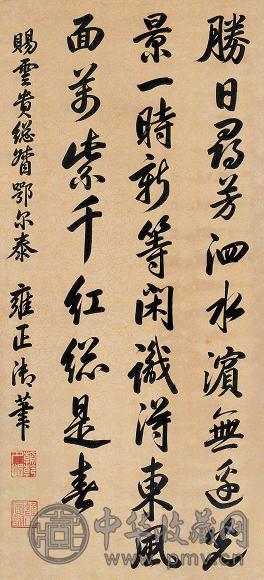 勝日尋芳泗水濱無邊光
景一時新等閑識得東風
面萬紫千紅総是春
賜雲貴総督鄂尔泰 雍正御筆
中华收藏网